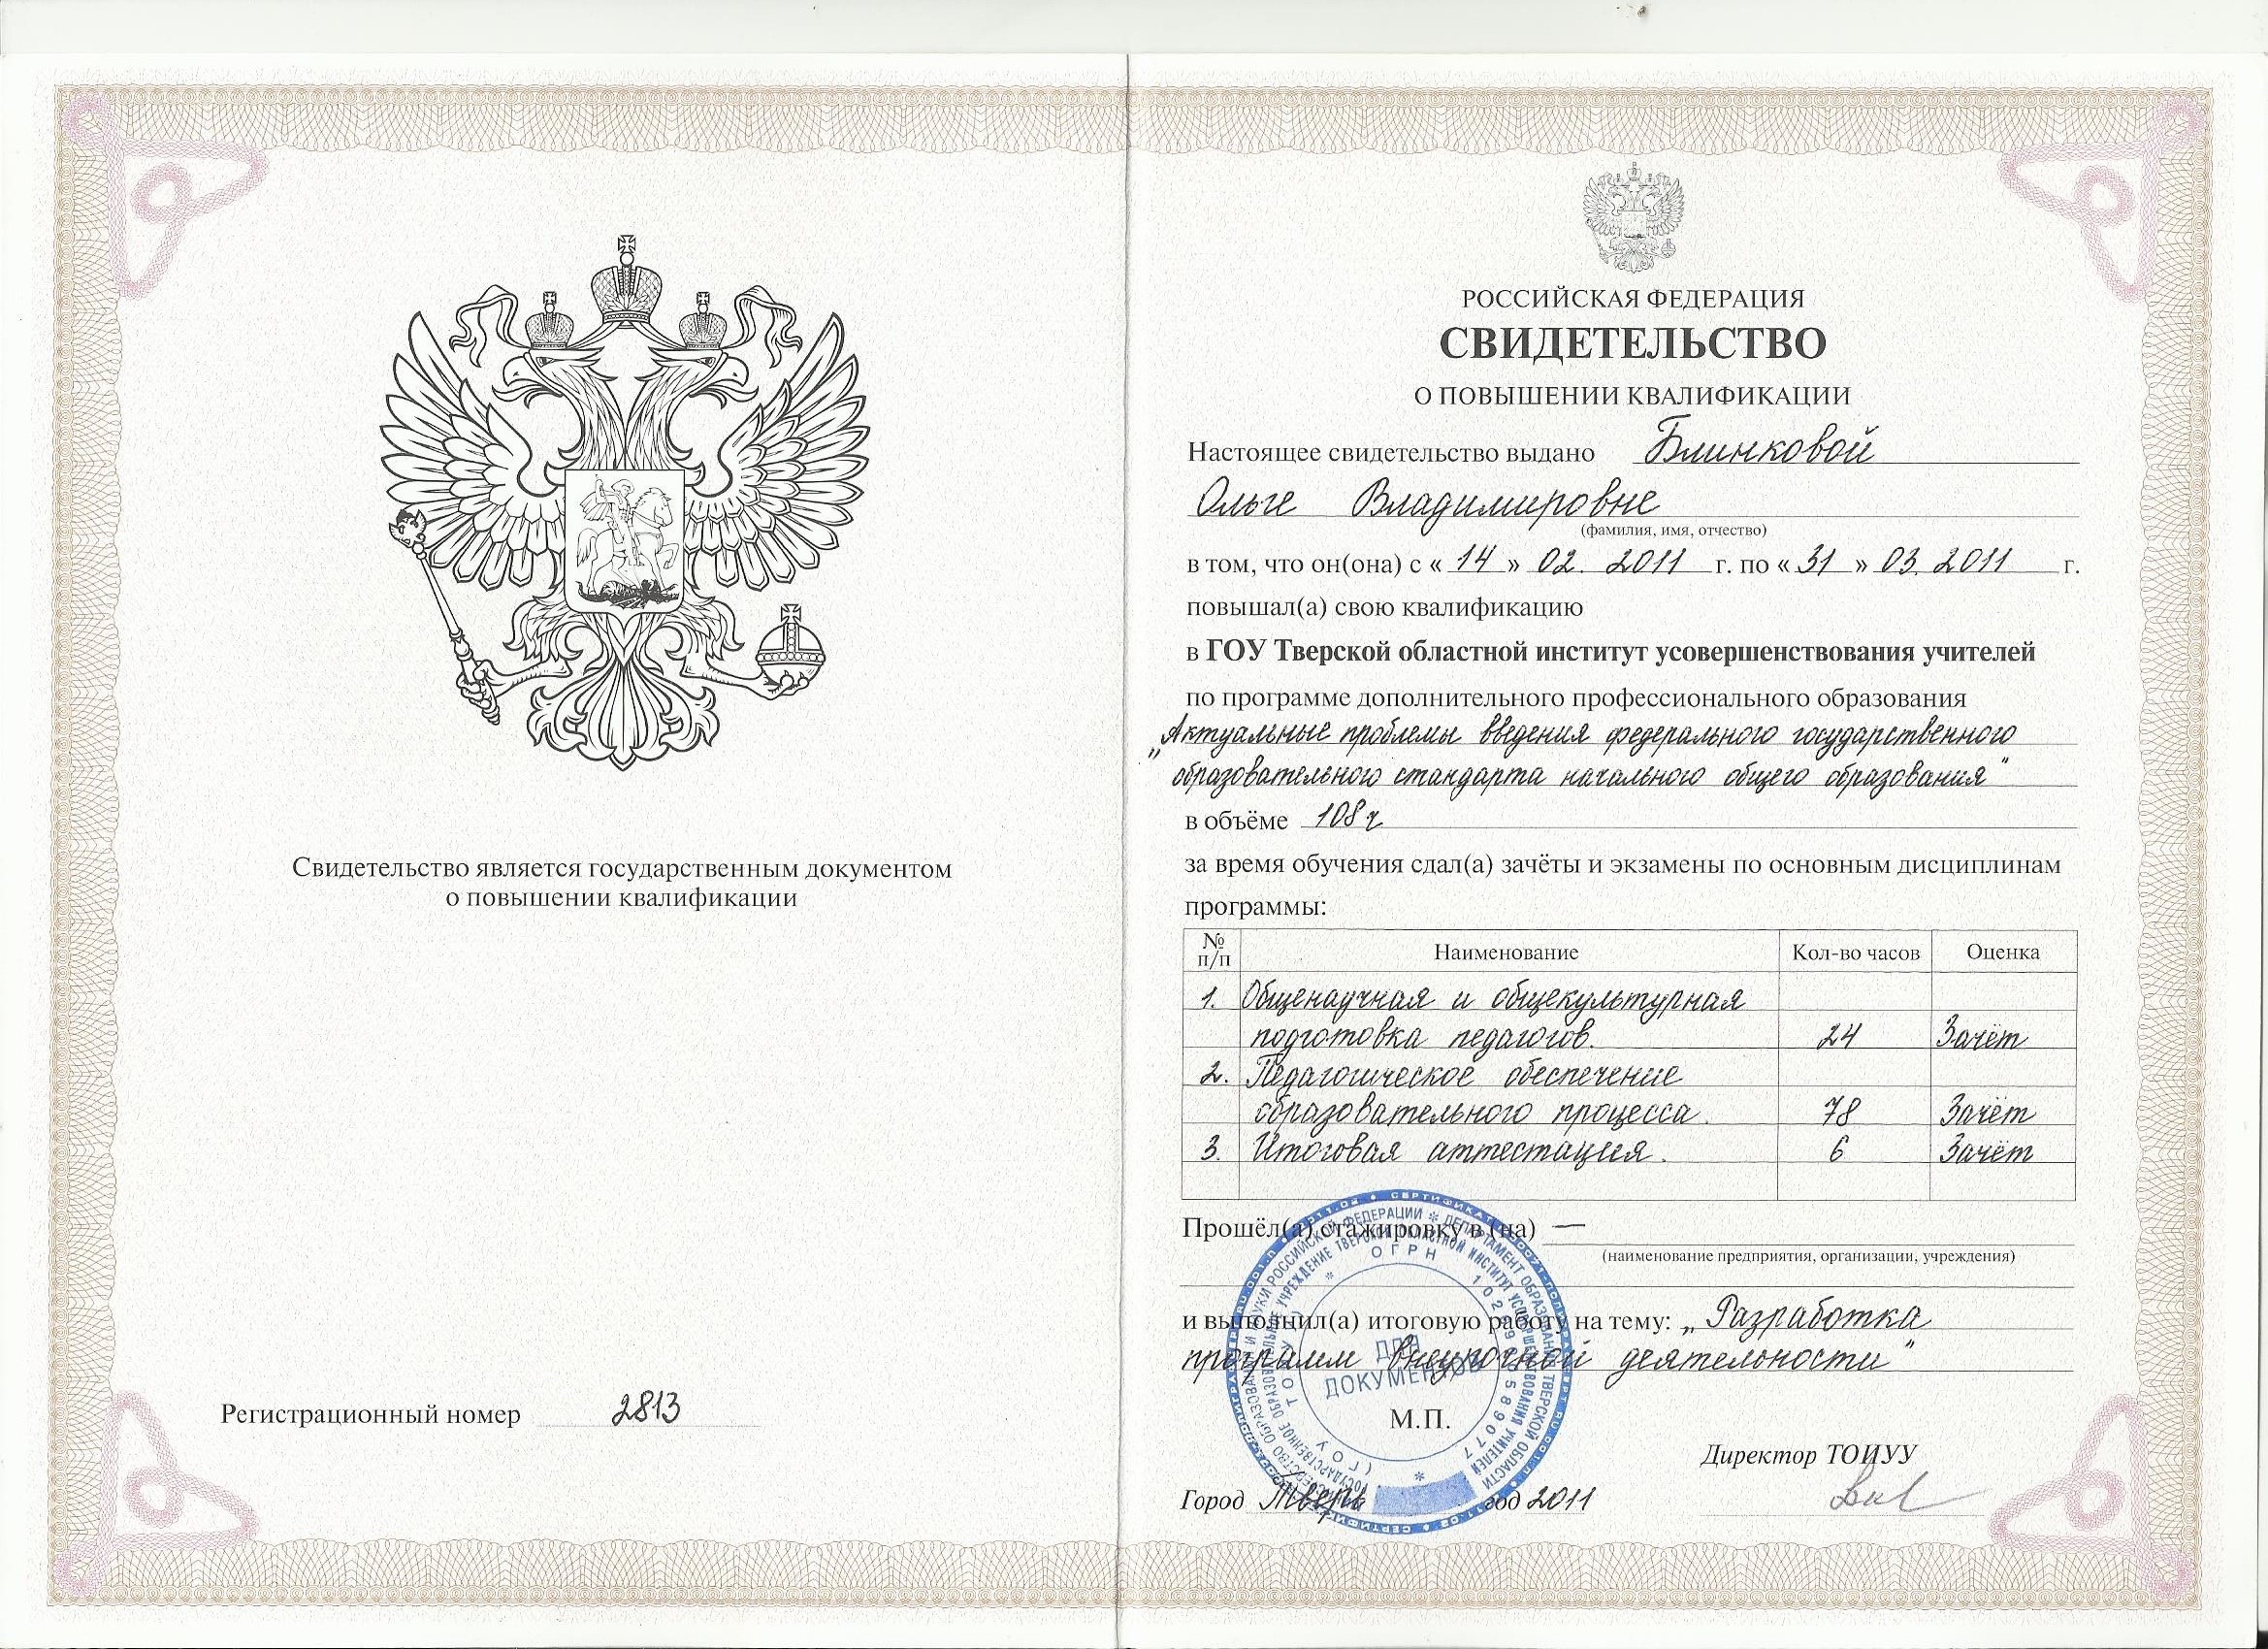 Свидетельство является государственным документом
о повышении квалификации
Регистрационный номер 2813
РОССИЙСКАЯ ФЕДЕРАЦИЯ
СВИДЕТЕЛЬСТВО
О ПОВЫШЕНИИ КВАЛИФИКАЦИИ
Настоящее свидетельство выдано Блинковой
Ольге Владимировне
(фамилия, имя, отчество)
в том, что он(она) с « 14 » 02. 2011 г. по « 31 » 03. 2011 г.
повышал(а) свою квалификацию
в ГОУ Тверской областной институт усовершенствования учителей
по программе дополнительного профессионального образования
„Актуальные проблемы введения федерального государственного
образовательного стандарта начального общего образования"
в объёме 108 ч
за время обучения сдал(а) зачёты и экзамены по основным дисциплинам
программы:
№ п/п Наименование Кол-во часов Оценка
1. Общенаучная и общекультурная
подготовка педагогов. 24 Зачёт
2. Педагогическое обеспечение
образовательного процесса. 78 Зачёт
3. Итоговая аттестация. 6 Зачёт
Прошёл(а) стажировку в (на) —
(наименование предприятия, организации, учреждения)
и выполнил(а) итоговую работу на тему: „Разработка
программ внеурочной деятельности"
ДЛЯ
ДОКУМЕНТОВ
М.П.
Директор ТОИУУ
Город Тверь год 2011